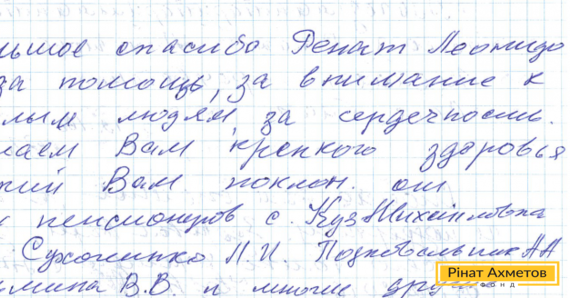 льшое спасибо Ренат Леонидо
за помощь, за внимание к
лым людям за сердечность.
лаем Вам крепкого здоровья
кий Вам поклон. от
х пенсионеров с.
Сухоненко Л.И.
мина В.В. и многие други
Рінат Ахметов
Фонд